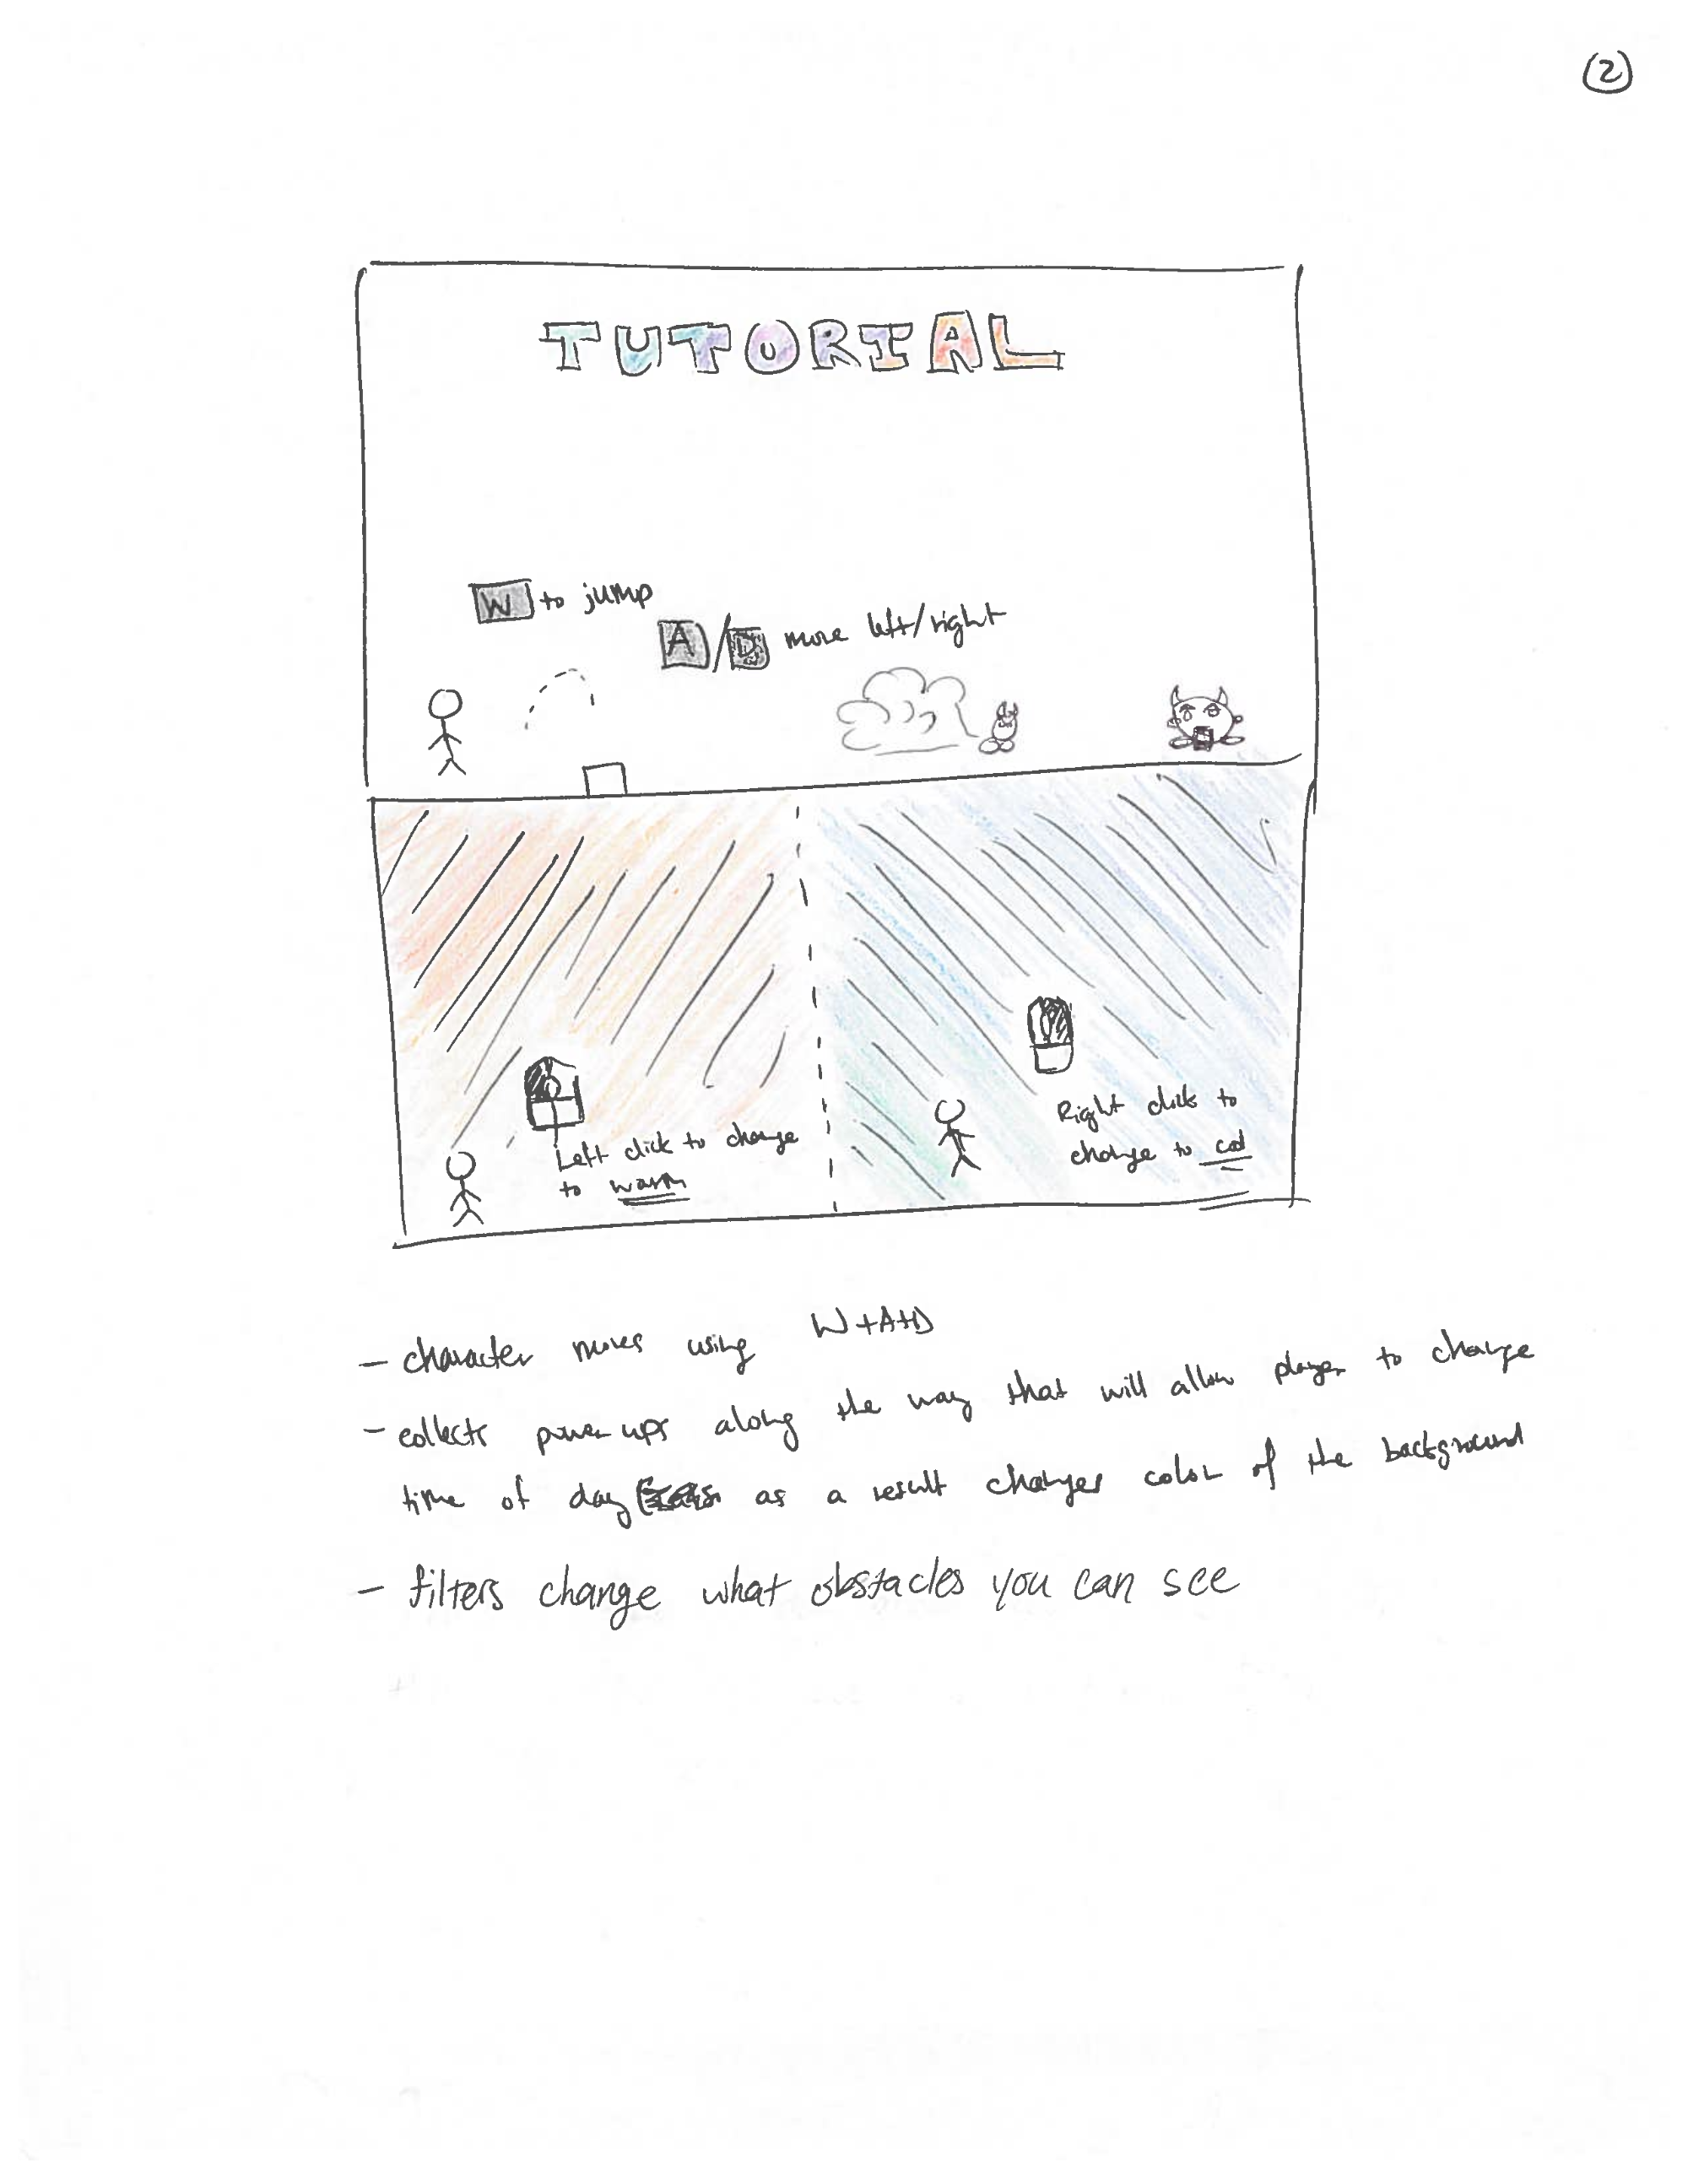 2
TUTORIAL
W to jump
A/D move left/right
Left click to change
to warm
Right click to
change to cool
- character moves using W+A+D
- collects power ups along the way that will allow player to change
time of day as a result changes color of the background
- filters change what obstacles you can see